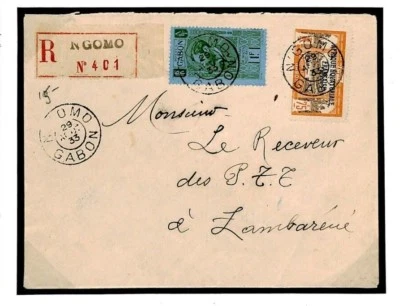 R NGOMO
N° 401
15-
N'GOMO
29
33
GABON
GABON
N'GOMO
GABON
Monsieur
Le Receveur
des P.T.T
à Lambaréné